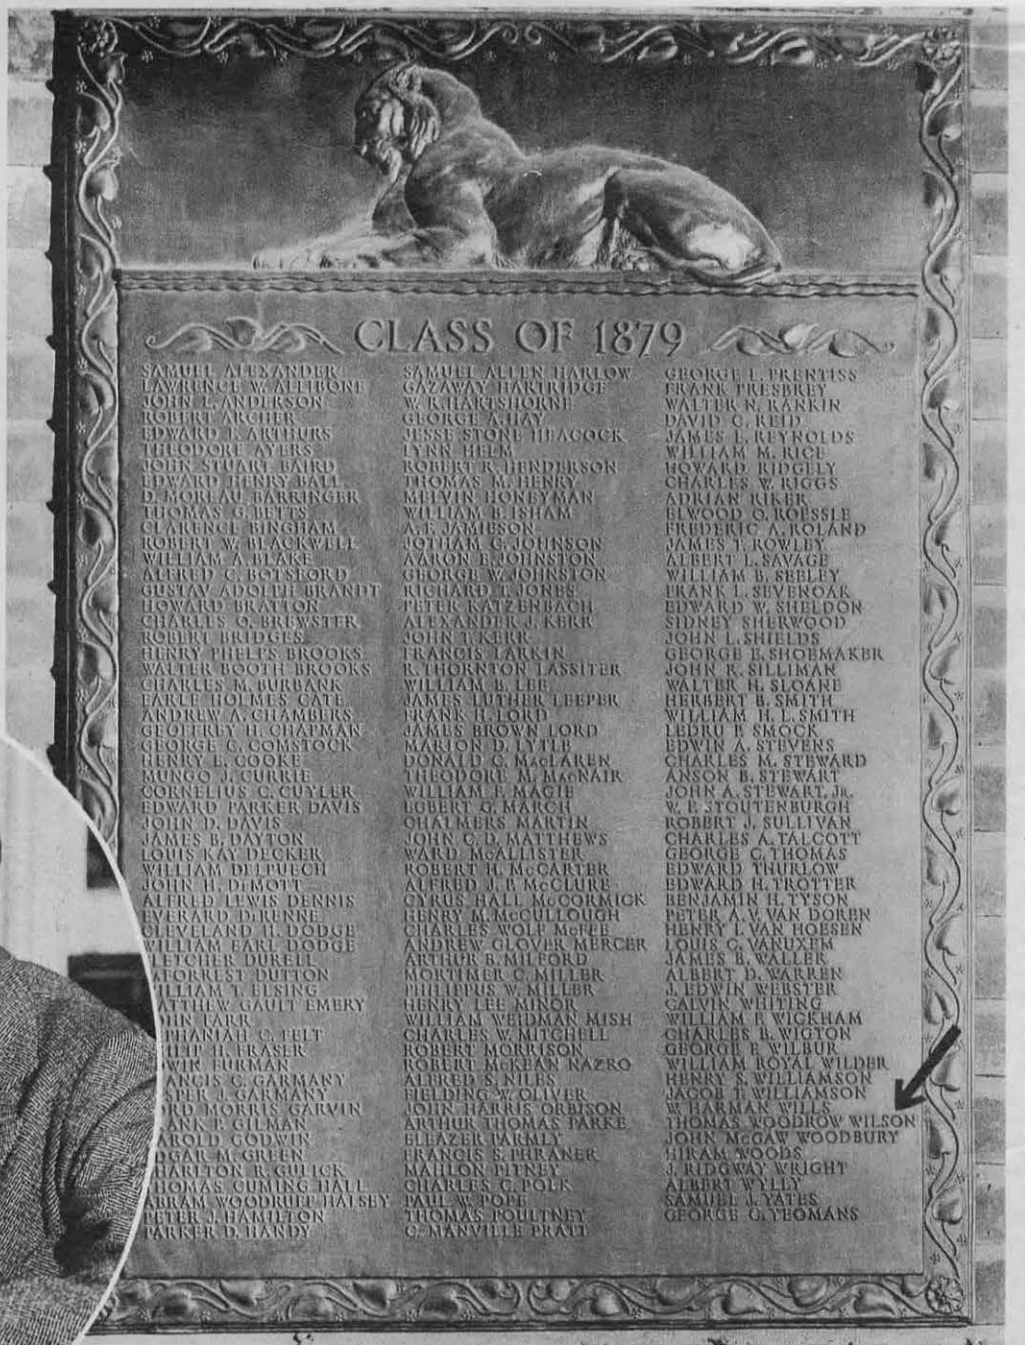 CLASS OF 1879
SAMUEL ALEXANDER
LAWRENCE W. ALLIBONE
JOHN L. ANDERSON
ROBERT ARCHER
EDWARD T. ARTHURS
THEODORE AYERS
JOHN STUART BAIRD
EDWARD HENRY BALL
D. MOREAU BARRINGER
THOMAS G. BETTS
CLARENCE BINGHAM
ROBERT W. BLACKWELL
WILLIAM A. BLAKE
ALFRED C. BOTSFORD
GUSTAV ADOLPH BRANDT
HOWARD BRATTON
CHARLES O. BREWSTER
ROBERT BRIDGES
HENRY PHELPS BROOKS
WALTER BOOTH BROOKS
CHARLES M. BURBANK
EARLE HOLMES CATE
ANDREW A. CHAMBERS
GEOFFREY H. CHAPMAN
GEORGE C. COMSTOCK
HENRY E. COOKE
MUNGO J. CURRIE
CORNELIUS C. CUYLER
EDWARD PARKER DAVIS
JOHN D. DAVIS
JAMES B. DAYTON
LOUIS KAY DECKER
WILLIAM DELPUECH
JOHN H. DEMOTT
ALFRED LEWIS DENNIS
EVERARD DERENNE
CLEVELAND H. DODGE
WILLIAM EARL DODGE
LETCHER DURELL
AFORREST DUTTON
ILLIAM T. ELSING
ATTHEW GAULT EMERY
OHN FARR
PHANIAH C. FELT
ILIP H. FRASER
WIN FURMAN
ANCIS C. GARMANY
SPER J. GARMANY
ORD MORRIS GARVIN
ANK P. GILMAN
AROLD GODWIN
DGAR M. GREEN
HARLTON R. GULICK
HOMAS CUMING HALL
ABRAM WOODRUFF HALSEY
PETER J. HAMILTON
PARKER D. HANDY
SAMUEL ALLEN HARLOW
GAZAWAY HARTRIDGE
W. R. HARTSHORNE
GEORGE A. HAY
JESSE STONE HEACOCK
LYNN HELM
ROBERT R. HENDERSON
THOMAS M. HENRY
MELVIN HONEYMAN
WILLIAM B. ISHAM
A. F. JAMIESON
JOTHAM C. JOHNSON
AARON E. JOHNSTON
GEORGE W. JOHNSTON
RICHARD T. JONES
PETER KATZENBACH
ALEXANDER J. KERR
JOHN T. KERR
FRANCIS LARKIN
R. THORNTON LASSITER
WILLIAM B. LEE
JAMES LUTHER LEEPER
FRANK H. LORD
JAMES BROWN LORD
MARION D. LYTLE
DONALD C. MACLAREN
THEODORE M. MACNAIR
WILLIAM F. MAGIE
EGBERT G. MARCH
CHALMERS MARTIN
JOHN C. D. MATTHEWS
WARD MCALLISTER
ROBERT H. MCCARTER
ALFRED J. P. MCCLURE
CYRUS HALL MCCORMICK
HENRY M. MCCULLOUGH
CHARLES WOLF MCFEE
ANDREW GLOVER MERCER
ARTHUR B. MILFORD
MORTIMER C. MILLER
PHILIPPUS W. MILLER
HENRY LEE MINOR
WILLIAM WEIDMAN MISH
CHARLES W. MITCHELL
ROBERT MORRISON
ROBERT MCKEAN NAZRO
ALFRED S. NILES
FIELDING W. OLIVER
JOHN HARRIS ORBISON
ARTHUR THOMAS PARKE
ELEAZER PARMLY
FRANCIS S. PHRANER
MAHLON PITNEY
CHARLES C. POLK
PAUL W. POPE
THOMAS POULTNEY
C. MANVILLE PRATT
GEORGE L. PRENTISS
FRANK PRESBREY
WALTER N. RANKIN
DAVID C. REID
JAMES L. REYNOLDS
WILLIAM M. RICE
HOWARD RIDGELY
CHARLES W. RIGGS
ADRIAN RIKER
ELWOOD O. ROESSLE
FREDERIC A. ROLAND
JAMES T. ROWLEY
ALBERT L. SAVAGE
WILLIAM B. SEELEY
FRANK L. SEVENOAK
EDWARD W. SHELDON
SIDNEY SHERWOOD
JOHN L. SHIELDS
GEORGE E. SHOEMAKER
JOHN R. SILLIMAN
WALTER H. SLOANE
HERBERT B. SMITH
WILLIAM H. L. SMITH
LEDRU P. SMOCK
EDWIN A. STEVENS
CHARLES M. STEWARD
ANSON B. STEWART
JOHN A. STEWART, JR.
W. E. STOUTENBURGH
ROBERT J. SULLIVAN
CHARLES A. TALCOTT
GEORGE C. THOMAS
EDWARD THURLOW
EDWARD H. TROTTER
BENJAMIN H. TYSON
PETER A. V. VAN DOREN
HENRY I. VAN HOESEN
LOUIS C. VANUXEM
JAMES B. WALLER
ALBERT D. WARREN
J. EDWIN WEBSTER
CALVIN WHITING
WILLIAM F. WICKHAM
CHARLES B. WIGTON
GEORGE F. WILBUR
WILLIAM ROYAL WILDER
HENRY S. WILLIAMSON
JACOB T. WILLIAMSON
W. HARMAN WILLS
THOMAS WOODROW WILSON
JOHN MCGAW WOODBURY
HIRAM WOODS
J. RIDGWAY WRIGHT
ALBERT WYLLY
SAMUEL J. YATES
GEORGE O. YEOMANS